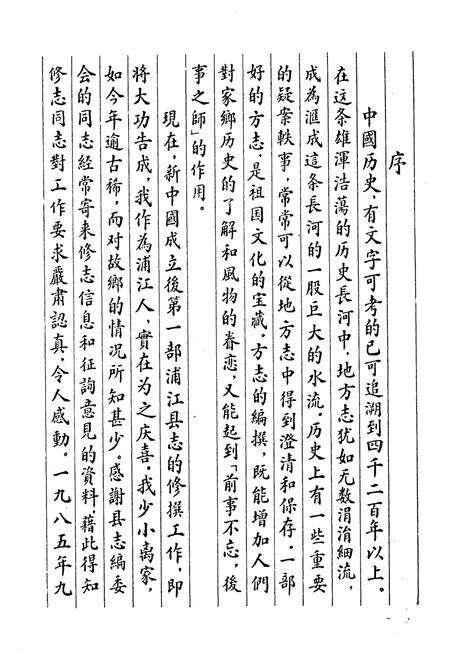 序
中國历史，有文字可考的已可追溯到四千二百年以上。
在这条雄渾浩荡的历史長河中，地方志犹如无数涓涓细流，
成為滙成這条長河的一股巨大的水流。历史上有一些重要
的疑案軼事，常常可以從地方志中得到澄清和保存。一部
好的方志，是祖国文化的宝藏，方志的编撰，既能增加人們
對家鄉历史的了解和風物的眷恋，又能起到「前事不忘，後
事之師」的作用。
現在，新中國成立後第一部浦江县志的修撰工作，即
将大功告成，我作為浦江人，實在为之庆喜。我少小离家，
如今年逾古稀，而对故鄉的情况所知甚少。感謝县志編委
会的同志經常寄来修志信息和征詢意見的資料，藉此得知
修志同志對工作要求嚴肅認真，令人感動。一九八五年九